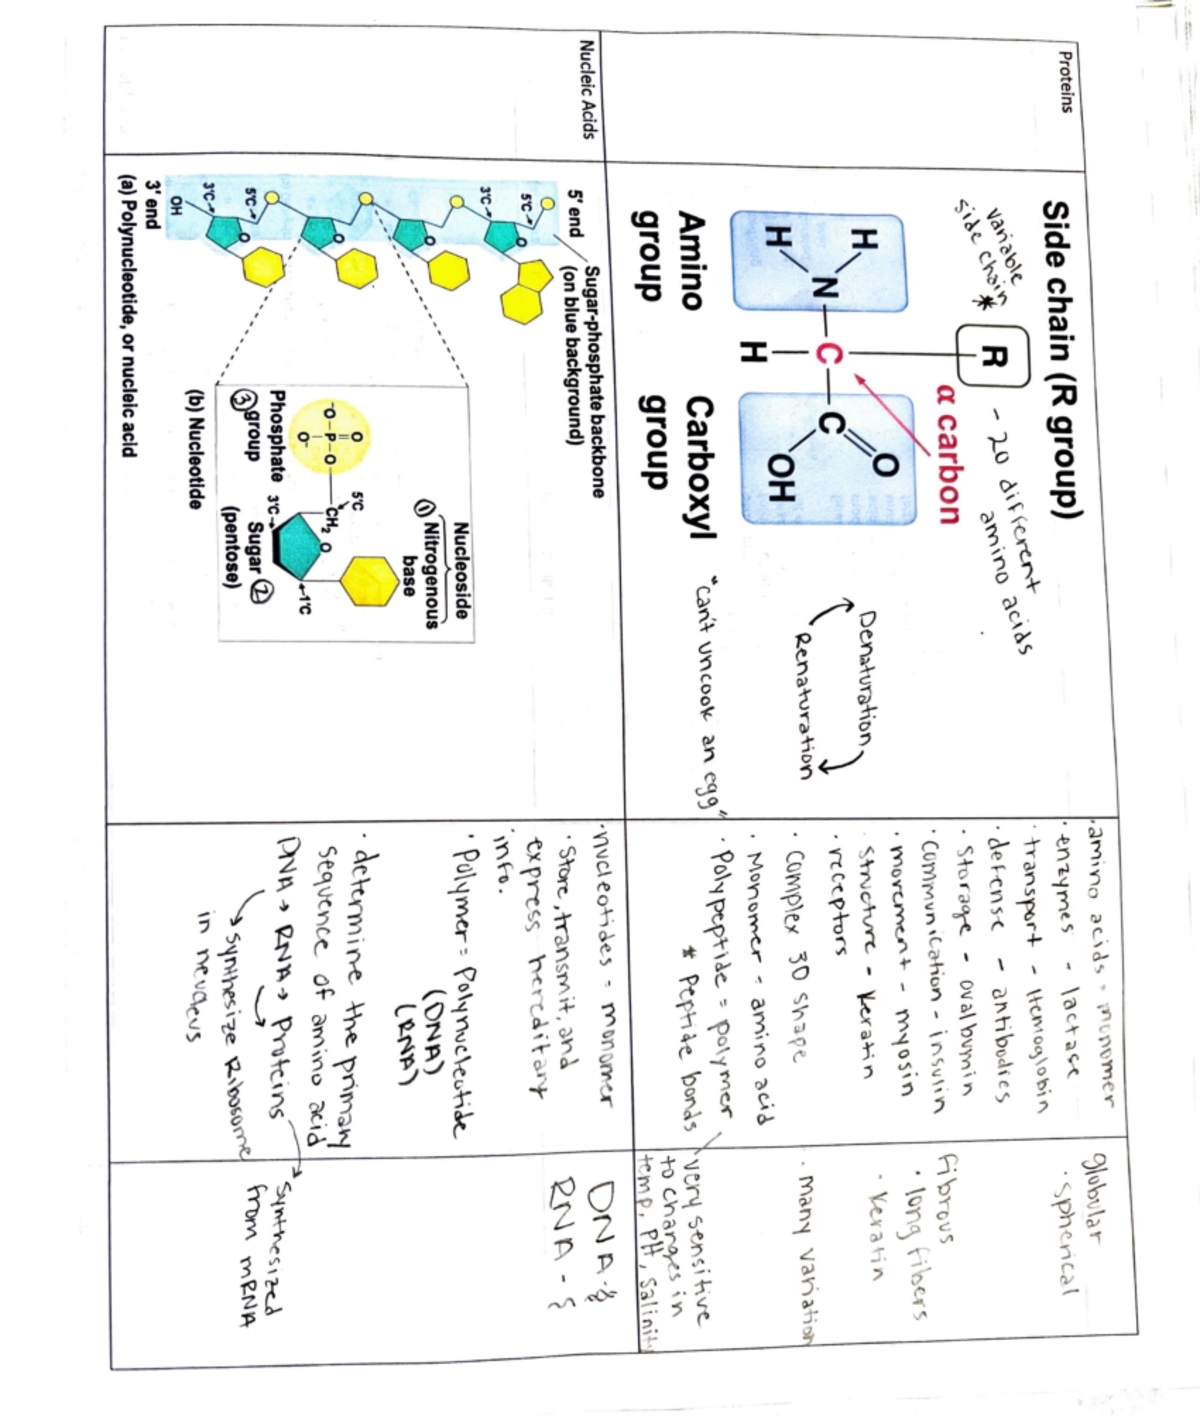 Proteins
Side chain (R group)
variable
side chain *
R
- 20 different
amino acids
α carbon
H
H
N
C
H
C
O
OH
Amino
group
Carboxyl
group
Denaturation
Renaturation
"can't uncook an egg"
· amino acids = monomer
· enzymes - lactase
· transport - Hemoglobin
· defense - antibodies
· storage - ovalbumin
· communication - insulin
· movement - myosin
· structure - keratin
· receptors
· complex 3D shape
· Monomer = amino acid
· Polypeptide = polymer
* peptide bonds
globular
· spherical
fibrous
· long fibers
· keratin
· many variation
very sensitive
to changes in
temp, PH, salinity
Nucleic Acids
5' end
Sugar-phosphate backbone
(on blue background)
5'C
3'C
O
O
O
O
5'C
3'C
OH
3' end
(a) Polynucleotide, or nucleic acid
Nucleoside
① Nitrogenous
base
5'C
O
⁻O-P-O
O⁻
CH₂
O
1'C
3'C
Phosphate
③ group
Sugar ②
(pentose)
(b) Nucleotide
· nucleotides = monomer
· store, transmit, and
express hereditary
info.
· Polymer = Polynucleotide
(DNA)
(RNA)
· determine the primary
sequence of amino acid
DNA → RNA → Proteins
synthesize Ribosome
in nucleus
DNA -
RNA -
synthesized
from mRNA